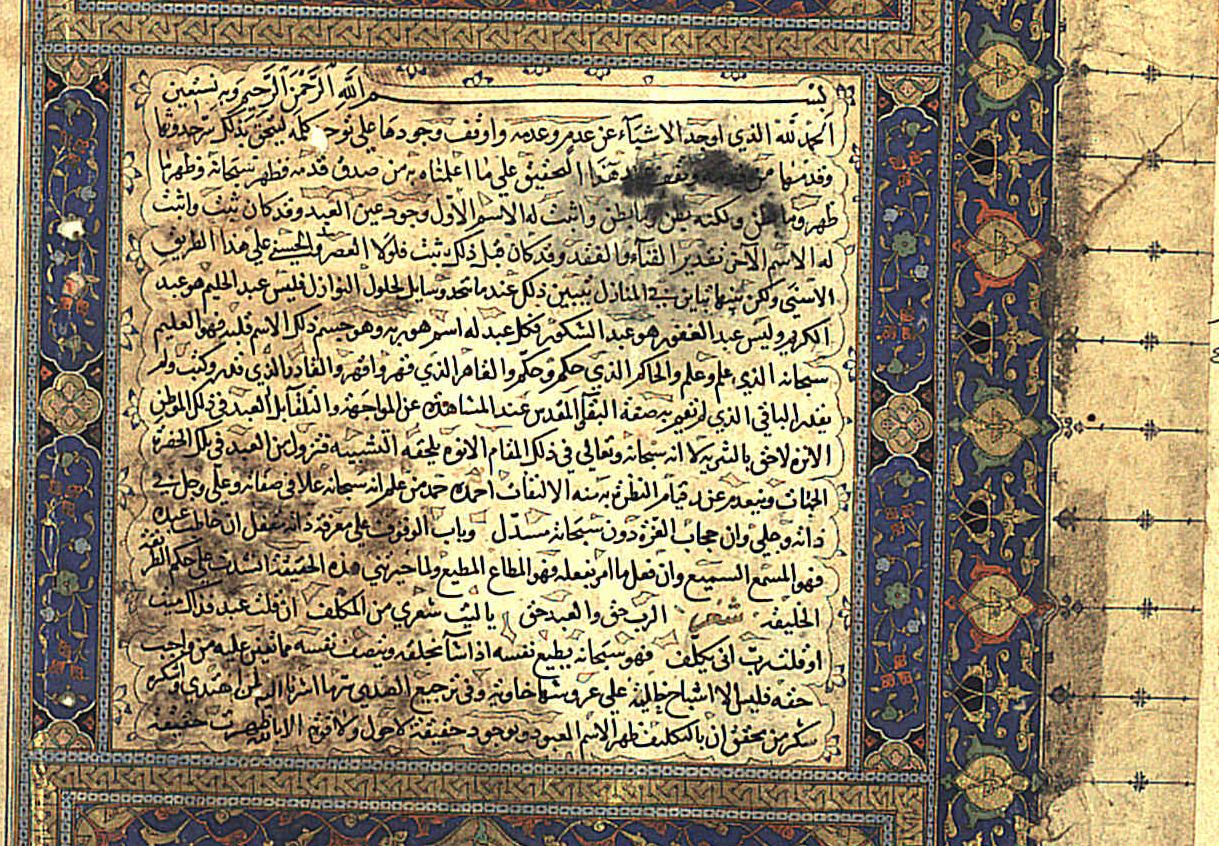 بسم الله الرحمن الرحيم وبه نستعين
الحمد لله الذي اوجد الاشيآء عن عدم وعدمه واوقف وجودها على توجه كلمه لنحقق بذلك سر حدوثها
وقدمها من ونقف هذا التحقيق على ما اعلمناه به من صدق قدمه فظهر سبحانه وظهر وما
ظهر وما بطن ولكنه بطن وابطن واثبت له الاسم الاول وجود عين العبد وقد كان ثبت واثبت
له الاسم الآخر تقدير الفنآء والفقد وقد كان قبل ذلك ثبت فلولا العصر والحسنى على هذا الطريق
الاسنى ولكن بينها تباين في المنازل يتبين ذلك عند ما تتخذ وسايل لحلول النوازل فليس عبد الحليم هو عبد
الكريم وليس عبد الغفور هو عبد الشكور فكل عبد له اسم هو ربه وهو جسم ذلك الاسم قلبه فهو العليم
سبحانه الذي علم وعلم والحاكم الذي حكم وحكم والقاهر الذي قهر واقهر والقادر الذي قدر وكسب ولم
يقدر الباقي الذي لم تقم به صفة البقآء المقدس عند المشاهدة عن المواجهة والتلقآ بل العبد في ذلك الموطن
الانزه لاحق بالتنزيه لا انه سبحانه وتعالى في ذلك المقام الانوه يلحقه التشبيه فتزول من العبد في تلك الحضرة
الجهات وينعدم عند قيام النظرة به منه الالتفات احمده حمد من علم انه سبحانه علا في صفاته وعلى وجل في
ذاته وجلى وان حجاب العزة دون سبحانه مسدل وباب الوقوف على معرفة ذاته مقفل ان خاطب عبده
فهو المسمع السميع وان فعل ما امر بفعله فهو المطاع المطيع ولما حيرتني هذه الحقيقة انشدت على حكم الطريقة
الخليقة شعر الرب حق والعبد حق يا ليت شعري من المكلف ان قلت عبد فذاك ميت
او قلت رب انى يكلف فهو سبحانه يطيع نفسه اذا شآء بخلقه وينصف نفسه مما تعين عليه من واجب
حقه فليس الا اشباح خالية على عروشها خاوية وفى ترجيع الصدى سر ما اشرنا اليه لمن اهتدى واشكره
شكر من تحقق ان بالتكليف ظهر الاسم المعبود وبوجود حقيقة لا حول ولا قوة الا بالله ظهرت حقيقة